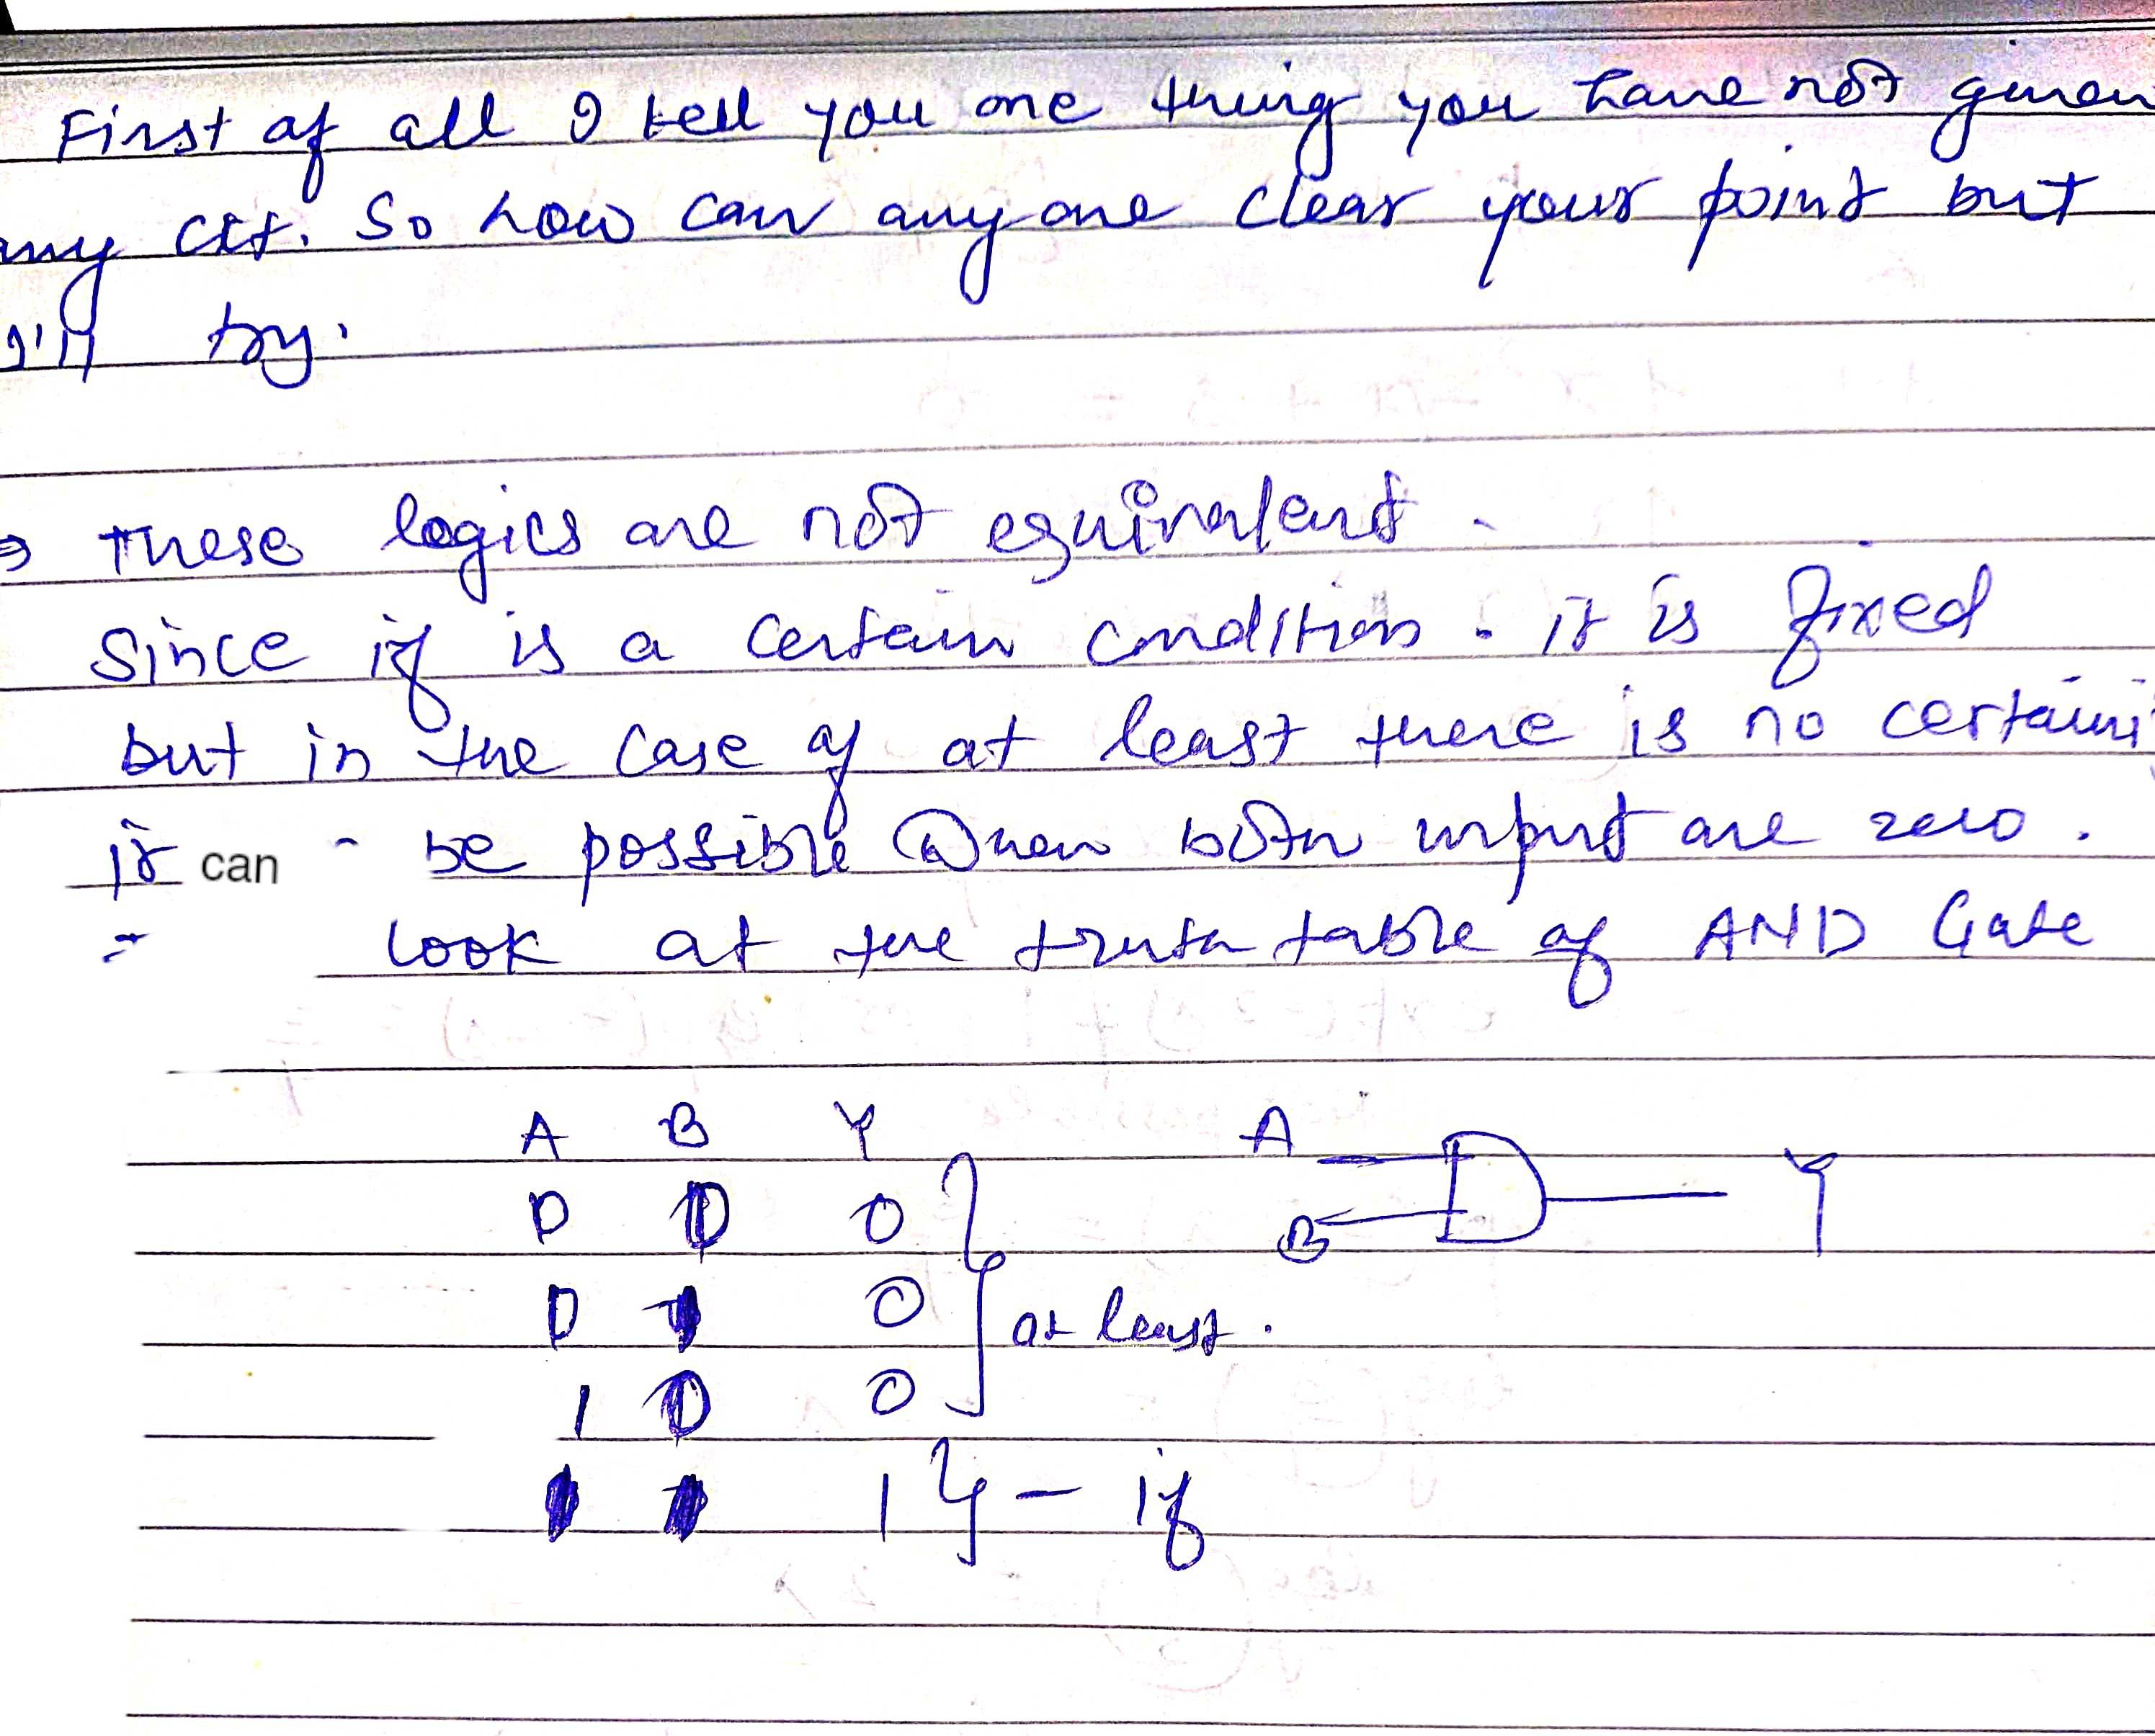 First of all I tell you one thing you have not given
any ckt. So how can anyone clear your point but
I'll try.
These logics are not equivalent.
Since if is a certain condition. it is fixed
but in the case of at least there is no certaini
it can be possible when both input are zero.
look at the truth table of AND Gate
A B Y A Y
0 0 0 B
0 1 0 at least.
1 0 0
1 1 1 - if